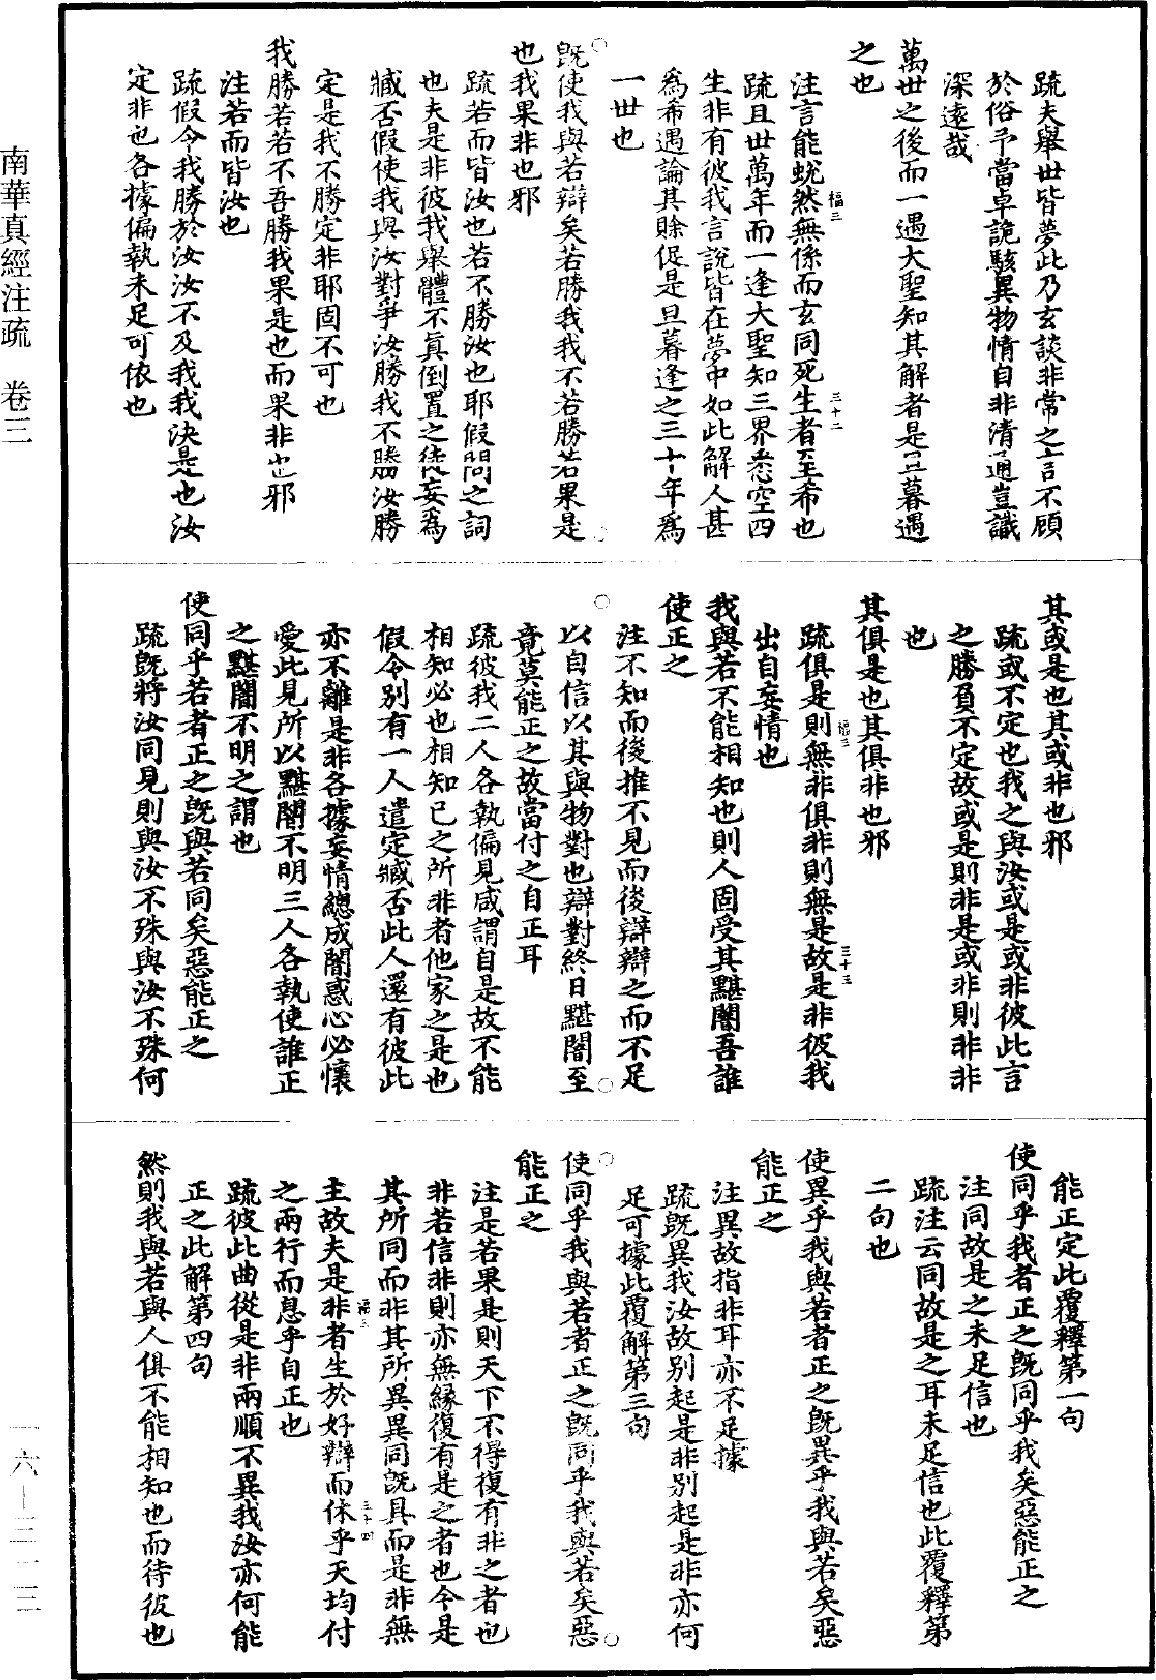 疏夫舉世皆夢此乃玄談非常之言不顧
於俗予當卓詭駭異物情自非清通豈識
深遠哉
萬世之後而一遇大聖知其解者是旦暮遇
之也
注言能蛻然無係而玄同死生者至希也
疏且世萬年而一逢大聖知三界悉空四
生非有彼我言說皆在夢中如此解人甚
為希遇論其賒促是旦暮逢之三十年為
一世也
既使我與若辯矣若勝我我不若勝若果是
也我果非也邪
疏若而皆汝也若不勝汝也耶假問之詞
也夫是非彼我舉體不真倒置之徒妄為
臧否假使我與汝對爭汝勝我不勝汝勝
定是我不勝定非耶固不可也
我勝若若不吾勝我果是也而果非也邪
注若而皆汝也
疏假令我勝於汝汝不及我我決是也汝
定非也各據偏執未足可依也
其或是也其或非也邪
疏或不定也我之與汝或是或非彼此言
之勝負不定故或是則非是或非則非非
也
其俱是也其俱非也邪
疏俱是則無非俱非則無是故是非彼我
出自妄情也
我與若不能相知也則人固受其黮闇吾誰
使正之
注不知而後推不見而後辯辯之而不足
以自信以其與物對也辯對終日黮闇至
竟莫能正之故當付之自正耳
疏彼我二人各執偏見咸謂自是故不能
相知必也相知己之所非者他家之是也
假令別有一人遣定臧否此人還有彼此
亦不離是非各據妄情總成闇惑心必懷
愛此見所以黮闇不明三人各執使誰正
之黮闇不明之謂也
使同乎若者正之既與若同矣惡能正之
疏既將汝同見則與汝不殊與汝不殊何
能正定此覆釋第一句
使同乎我者正之既同乎我矣惡能正之
注同故是之未足信也
疏注云同故是之耳未足信也此覆釋第
二句也
使異乎我與若者正之既異乎我與若矣惡
能正之
注異故指非耳亦不足據
疏既異我汝故別起是非別起是非亦何
足可據此覆解第三句
使同乎我與若者正之既同乎我與若矣惡
能正之
注是若果是則天下不得復有非之者也
非若信非則亦無緣復有是之者也今是
其所同而非其所異異同既具而是非無
主故夫是非者生於好辯而休乎天均付
之兩行而息乎自正也
疏彼此曲從是非兩順不異我汝亦何能
正之此解第四句
然則我與若與人俱不能相知也而待彼也
福三
三十二
福三
三十三
福三
三十四
南華真經注疏 卷三
一六—三一三